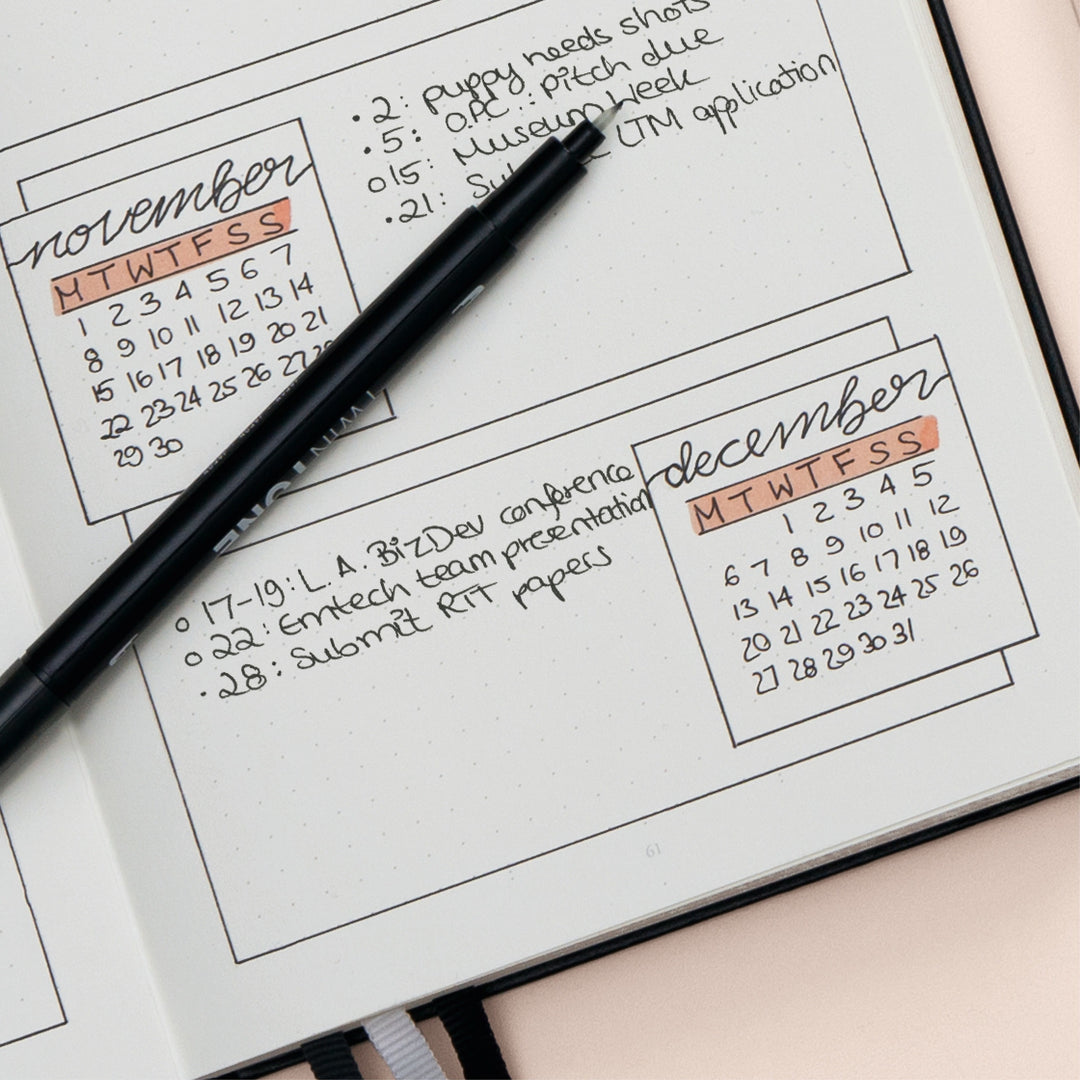 • 2: puppy needs shots
• 5: O.P.C.: pitch due
o 15: Museum Week
• 21: LTM application
november
M T W T F S S
1 2 3 4 5 6 7
8 9 10 11 12 13 14
15 16 17 18 19 20 21
22 23 24 25 26 27 28
29 30
december
M T W T F S S
1 2 3 4 5
6 7 8 9 10 11 12
13 14 15 16 17 18 19
20 21 22 23 24 25 26
27 28 29 30 31
o 17-19: L.A. BizDev conference
o 22: Emtech team presentation
• 28: Submit RIT papers
TWIN
TONE
61